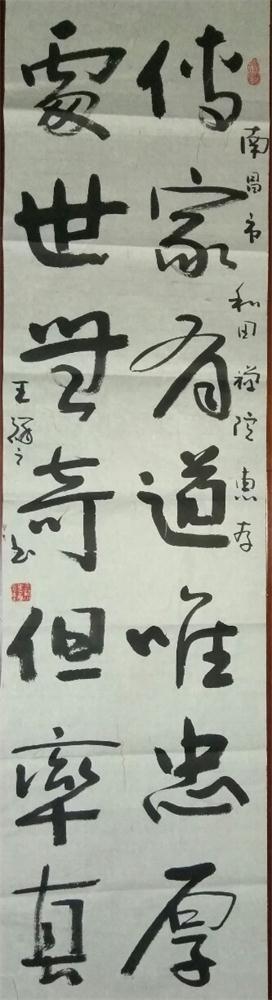 南昌市和田禅院惠存
傳家有道唯忠厚
處世無奇但率真
王
之书